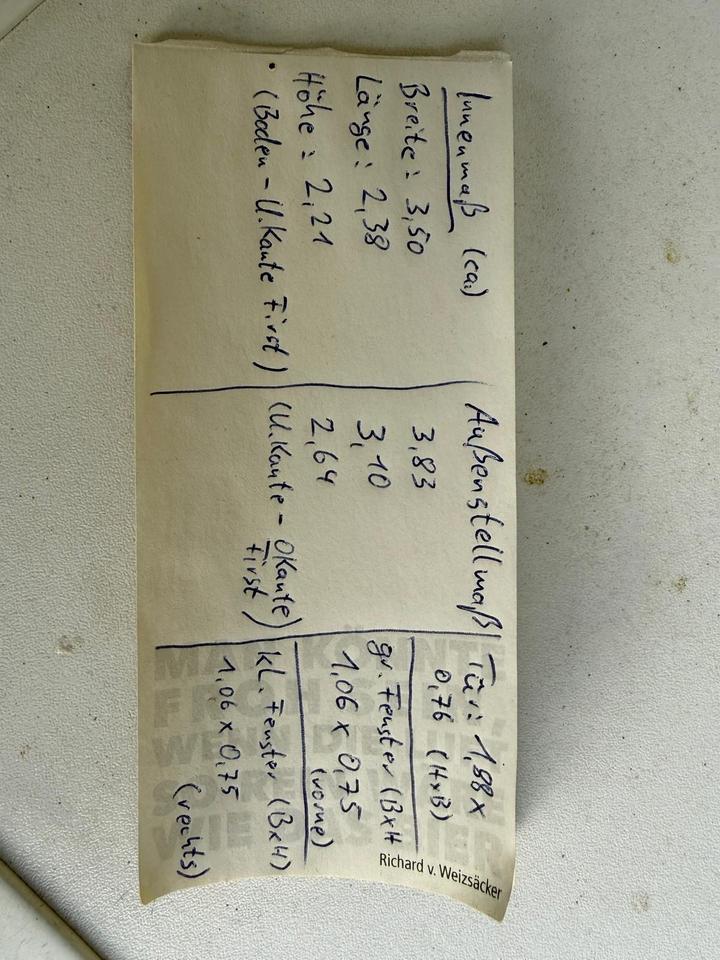 Innenmaß (ca.)
Breite: 3,50
Länge: 2,38
Höhe: 2,21
• (Boden - U.Kante First)
Außenstellmaß
3,83
3,10
2,64
(U.Kante - OKante
First)
Tür: 1,88 x
0,76 (HxB)
gr. Fenster (BxH
1,06 x 0,75
(vorne)
kl. Fenster (BxH)
1,06 x 0,75
(rechts)
MAN KÖNNTE
FROH SEIN,
WENN DIE LUFT
SO REIN WÄRE
WIE DAS BIER
Richard v. Weizsäcker